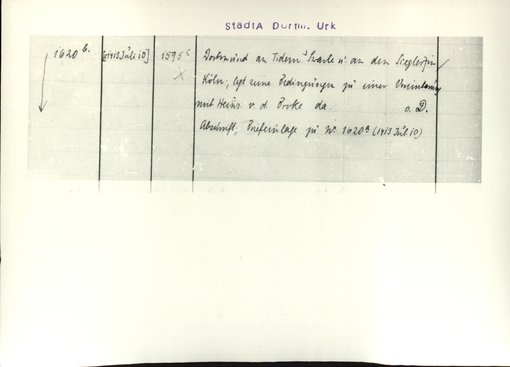 StadtA Dortm. Urk
1620 b. [1413 Juli 10] 1595 c Dortmund an Tidem Swarte u. an den Siegler in
x Köln, legt seine Bedingungen zu einer Vereinbarung
mit Heinr. v. d. Broke da. o. D.
Abschrift, Briefeinlage zu Nr. 1620 a (1413 Juli 10)